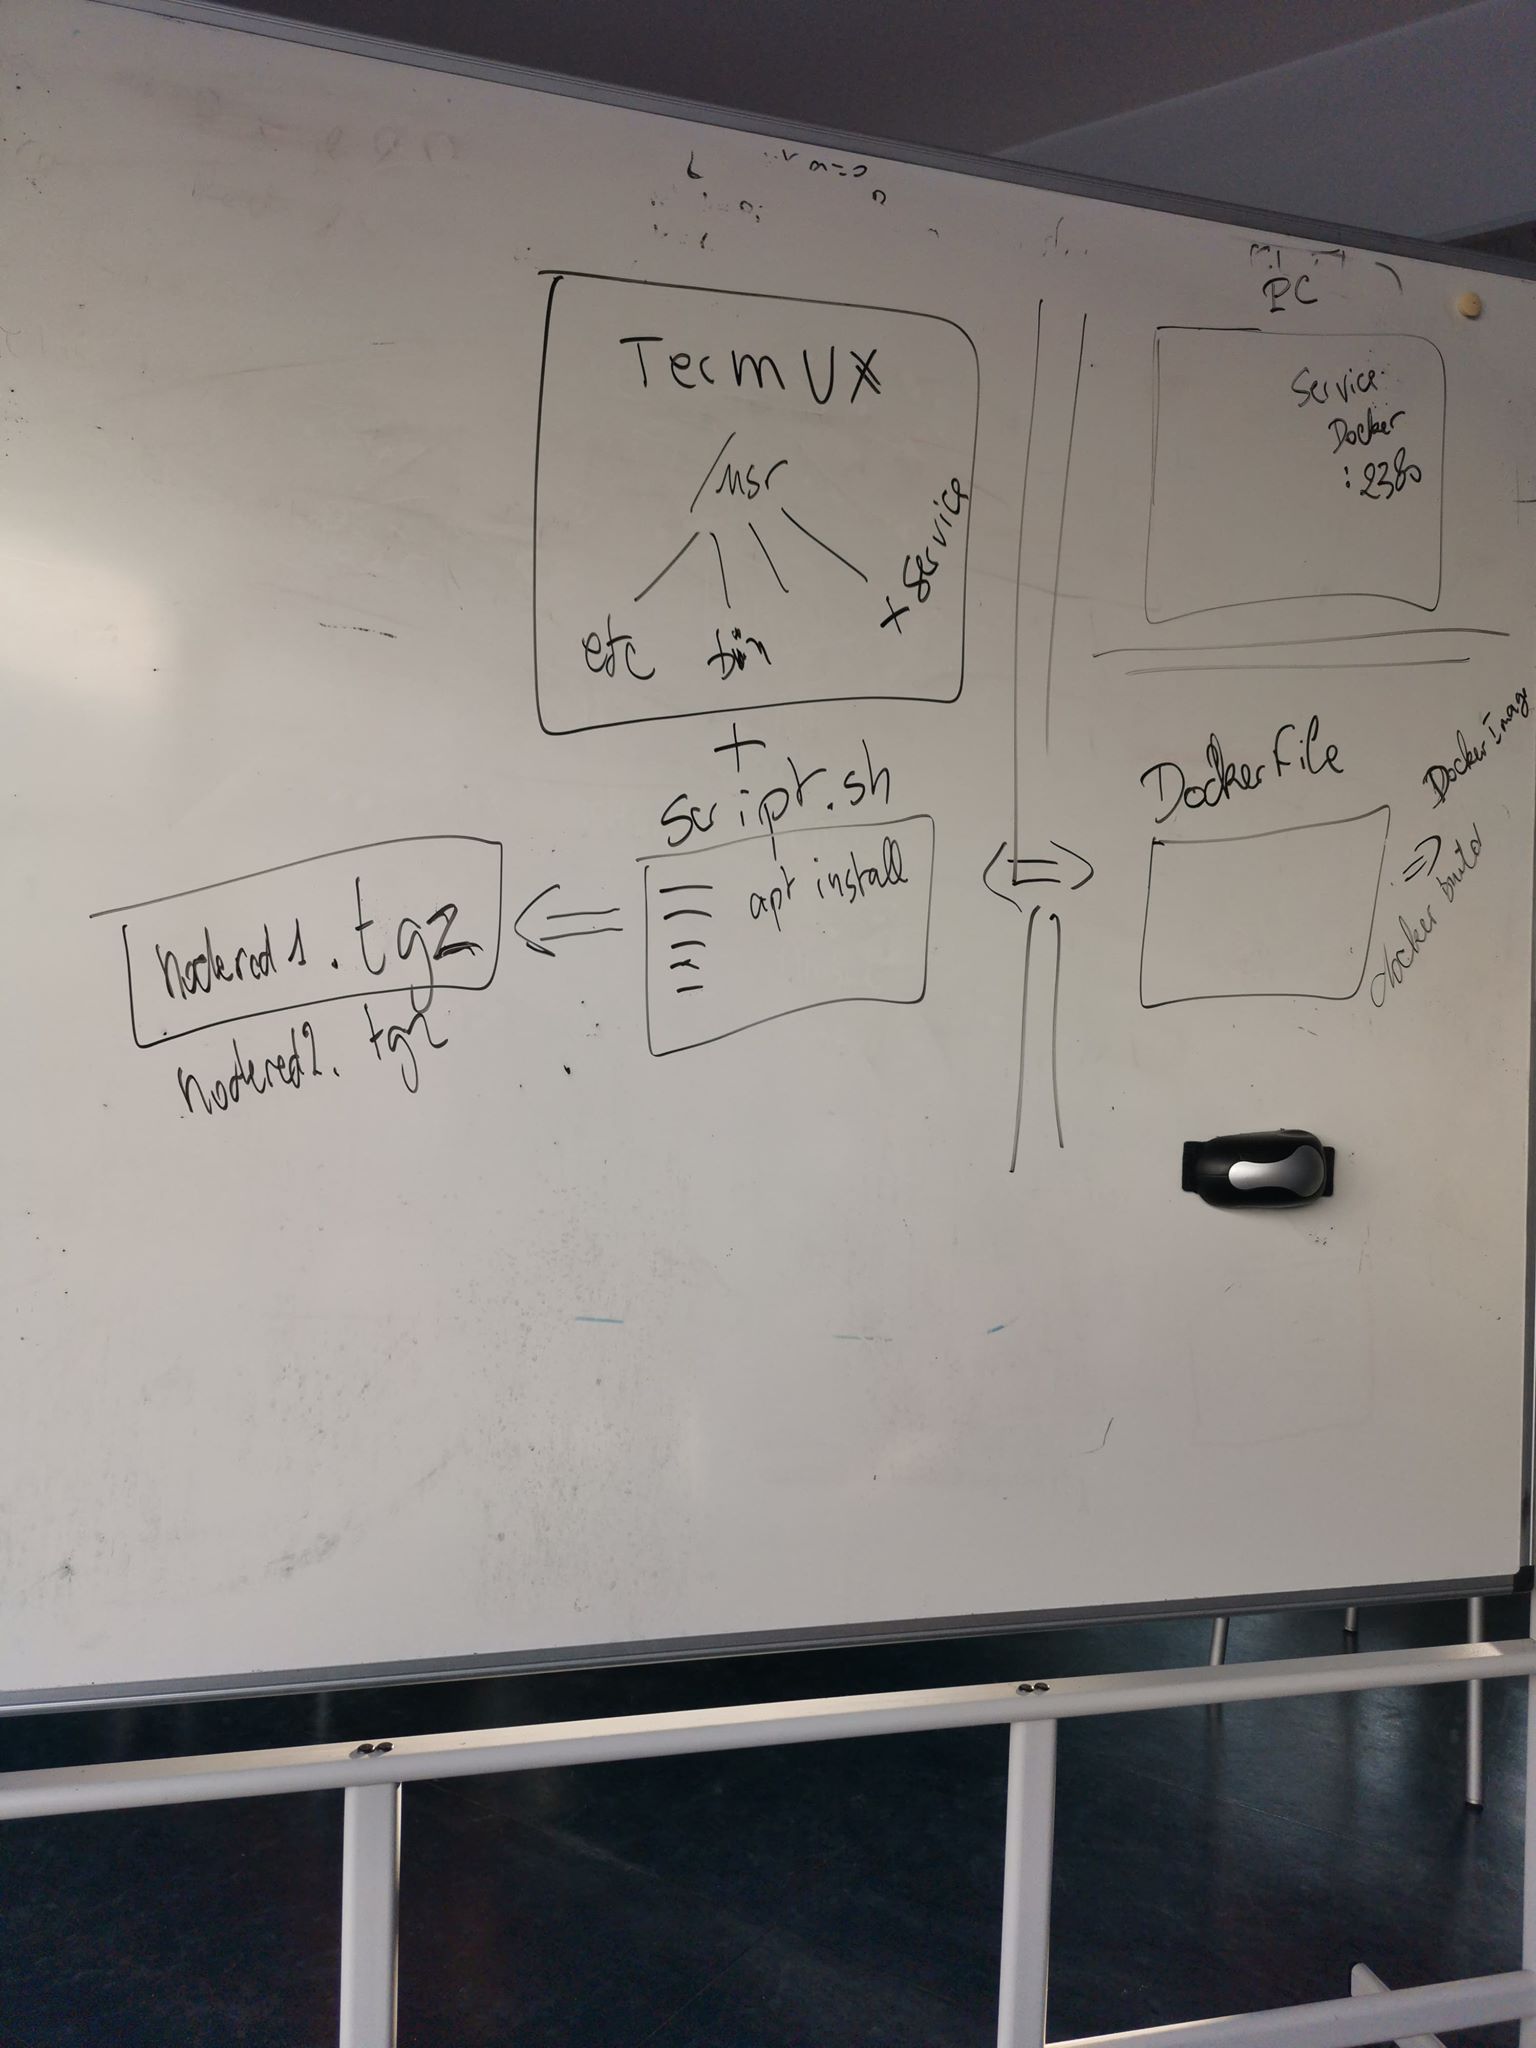 TermUX
/usr
etc bin
+ Service
+
script.sh
apt install
nodered1.tgz
nodered2.tgz
PC
Service
Docker
:2380
DockerFile
=> Docker Image
docker build